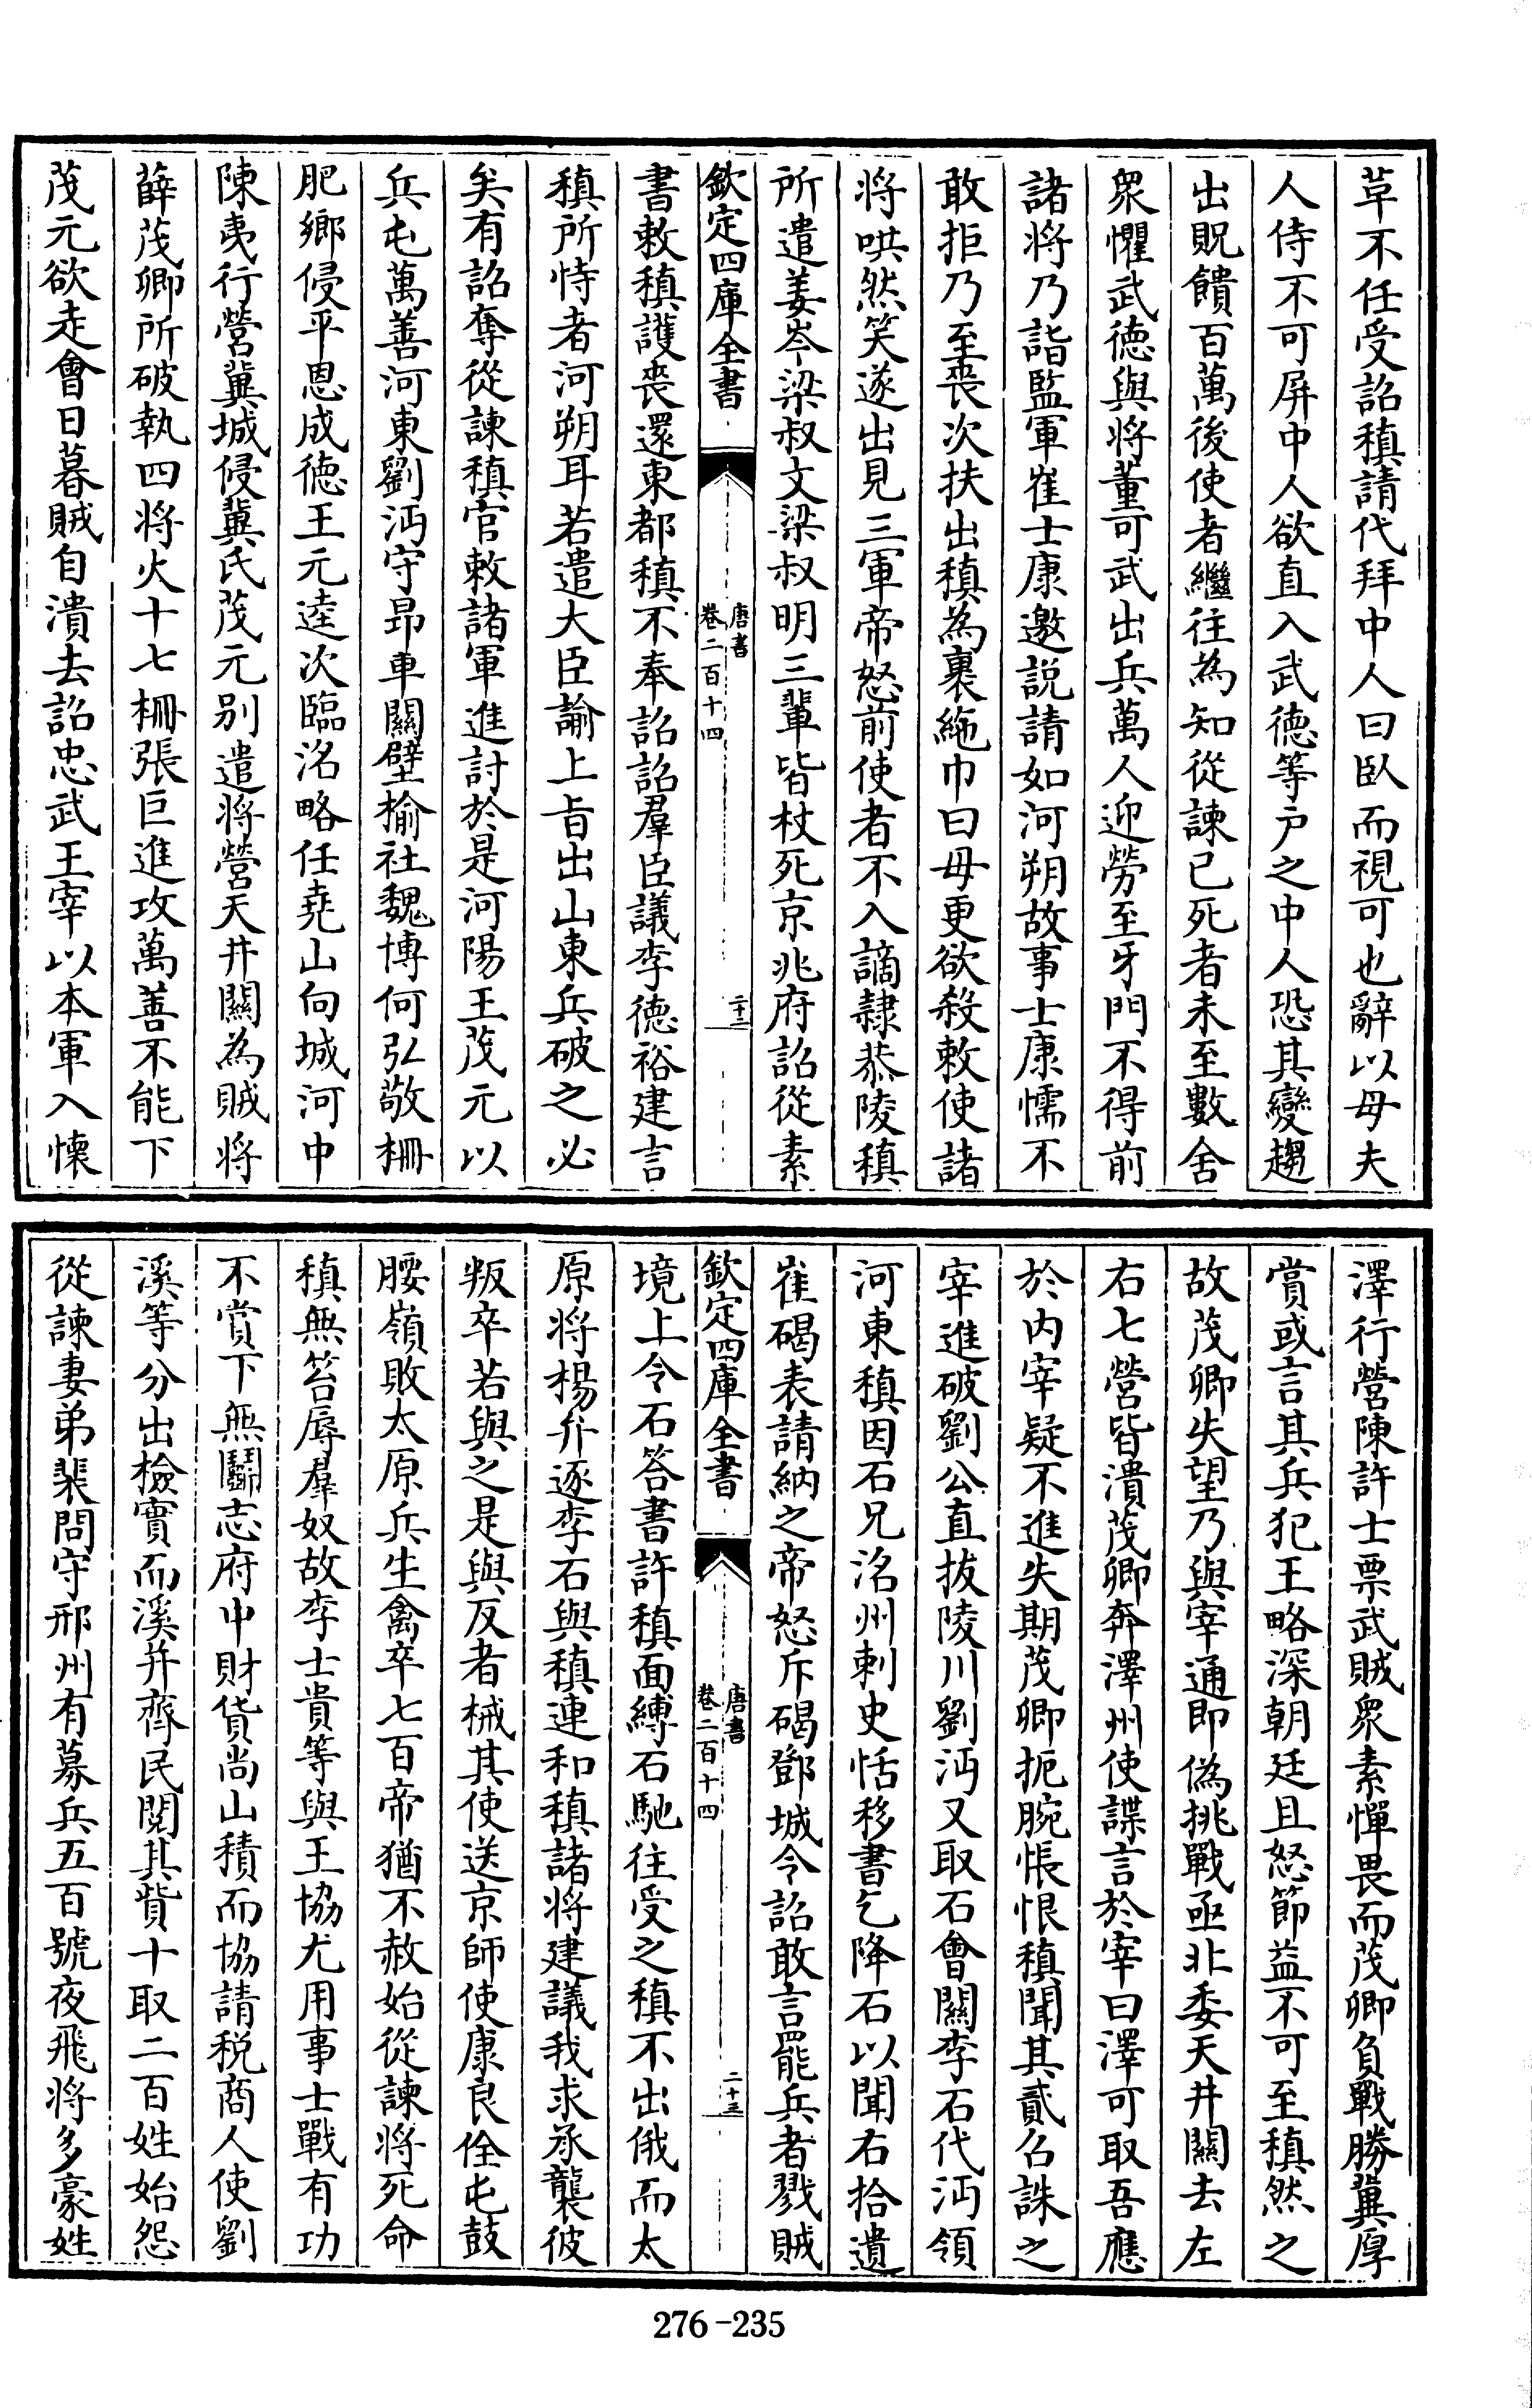 草不任受詔稹請代拜中人曰臥而視可也辭以母夫
人侍不可屏中人欲直入武德等戶之中人恐其變趨
出貺饋百萬後使者繼往為知從諫已死者未至數舍
眾懼武德與將董可武出兵萬人迎勞至牙門不得前
諸將乃詣監軍崔士康邀説請如河朔故事士康懦不
敢拒乃至喪次扶出稹為裹絁巾曰毋更欲殺敕使諸
將哄然笑遂出見三軍帝怒前使者不入謫隷恭陵稹
所遣姜岑梁叔文梁叔明三輩皆杖死京兆府詔從素
欽定四庫全書
唐書
卷二百十四
二十二
書敕稹護喪還東都稹不奉詔詔羣臣議李德裕建言
稹所恃者河朔耳若遣大臣諭上㫖出山東兵破之必
矣有詔奪從諫稹官敕諸軍進討於是河陽王茂元以
兵屯萬善河東劉沔守昂車關壁榆社魏博何弘敬柵
肥鄉侵平恩成德王元逵次臨洺略任堯山向城河中
陳夷行營冀城侵冀氏茂元别遣將營天井關為賊將
薛茂卿所破執四將火十七柵張巨進攻萬善不能下
茂元欲走會日暮賊自潰去詔忠武王宰以本軍入懷
澤行營陳許士票武賊眾素憚畏而茂卿負戰勝冀厚
賞或言其兵犯王略深朝廷且怒節益不可至稹然之
故茂卿失望乃與宰通即偽挑戰亟北委天井關去左
右七營皆潰茂卿奔澤州使諜言於宰曰澤可取吾應
於内宰疑不進失期茂卿扼腕悵恨稹聞其貳召誅之
宰進破劉公直拔陵川劉沔又取石會關李石代沔領
河東稹因石兄洺州刺史恬移書乞降石以聞右拾遺
崔碣表請納之帝怒斥碣鄧城令詔敢言罷兵者戮賊
欽定四庫全書
唐書
卷二百十四
二十三
境上令石答書許稹面縛石馳往受之稹不出俄而太
原將楊弁逐李石與稹連和稹諸將建議我求承襲彼
叛卒若與之是與反者械其使送京師使康良佺屯鼓
腰嶺敗太原兵生禽卒七百帝猶不赦始從諫將死命
稹無笞辱羣奴故李士貴等與王協尤用事士戰有功
不賞下無鬭志府中財貨尚山積而協請稅商人使劉
溪等分出檢實而溪并齊民閱其貲十取二百姓始怨
從諫妻弟裴問守邢州有募兵五百號夜飛將多豪姓
276-235